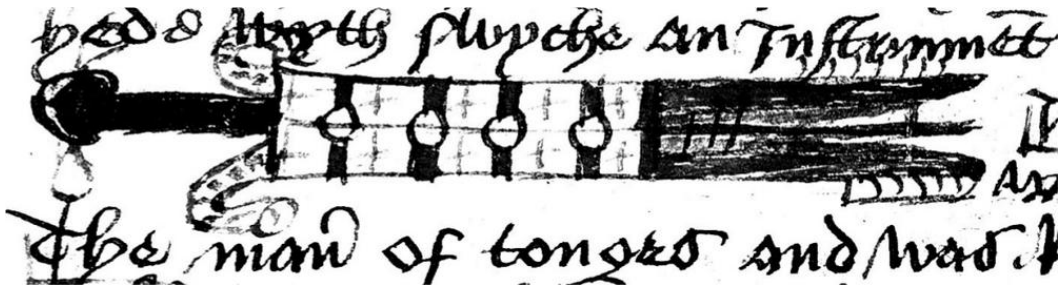 hede wyth swyche an Instrumēt
The man̄ of tonges and was